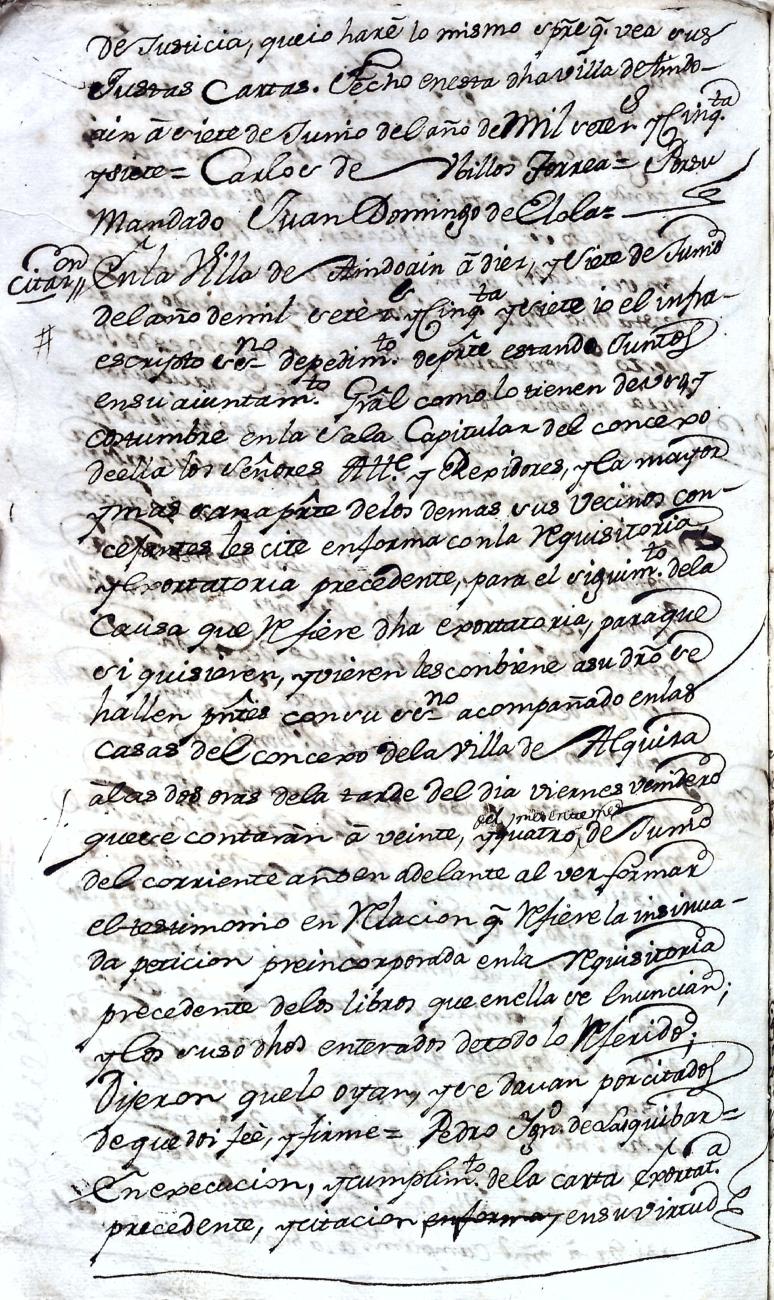 de Justicia, queio harê lo mismo spre q. vea sus
Justas Cartas. fecho enesta dha villa de Aindo-
ain â siete de Junio del año de Mil seteos y Cinq.ta
y siete = Carlos de Nbillos Torrea = Por su
Mandado Juan Domingo de Elola =
Citaz.on
En la Villa de Aindoain â diez, y Siete de Junio
del año de mil setes y Cinq.ta y siete io el infra-
escripto ssno de pedim.to de prte estando Juntos
en su aiuntam.to Gral como lo tienen de uso, y
costumbre en la Sala Capitular del concexo
de ella los Señores Alle. y Rexidores, y la mayor
y mas sana prte delos demas sus Vecinos con-
cejantes les cite en forma con la Requisitoria,
y Exortatoria precedente, para el siguim.to dela
Causa que Refiere dha exortatoria, paraque
si quisieren, y vieren les conbiene a su dro se
hallen pntes con su ssno acompañado en las
casas del concexo dela Villa de Alquiza
âlas dos oras dela tarde del dia viernes venidero
que se contarân â veinte, y quatro, de Junio
del presente mes
del corriente año en adelante al ver formar
el testimonio en Relacion q. Refiere la insinua-
da peticion preincorporada en la Requisitoria
precedente delos libros que en ella se Enuncian;
y los suso dhos enterados de todo lo Referido;
Dijeron que lo oyan, y se davan por citados
de que doi feê, y firme = Pedro Ign.o de Lasquibar =
En execucion, y cumplim.to de la carta exortat.a
precedente, y citacion en forma, en su virtud